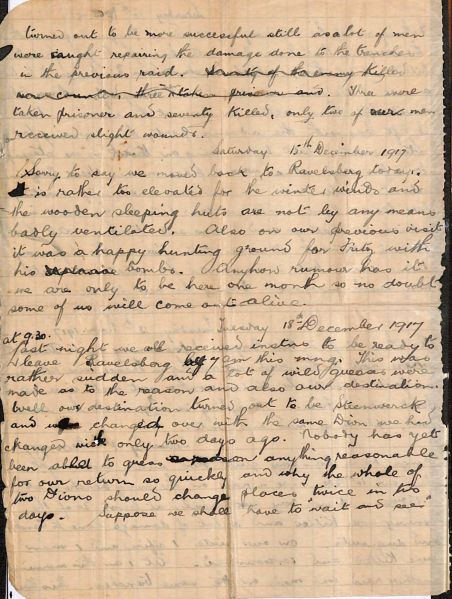 turned out to be more successful still as a lot of men
were caught repairing the damage done to the trenches
in the previous raid. Seventy of the enemy killed
were counted, three taken prisoner and. Three were
taken prisoner and seventy killed, only two of our men
received slight wounds.
Saturday 15th December 1917
Sorry to say we moved back to Ravelsberg today.
It is rather too elevated for the winter winds and
the wooden sleeping huts are not by any means
badly ventilated. Also on our previous visit
it was a happy hunting ground for Fritz with
his bombs. Anyhow rumour has it
we are only to be here one month so no doubt
some of us will come out alive.
Tuesday 18th December 1917
at 9.30.
Last night we all received instns to be ready to
leave Ravelsberg by 7 am this mng. This was
rather sudden and a lot of wild guesses were
made as to the reason and also our destination.
Well our destination turned out to be Steenwerck
and we changed over with the same Divn we had
changed with only two days ago. Nobody has yet
been able to guess a reason anything reasonable
for our return so quickly and why the whole of
two Divns should change places twice in two
days. Suppose we shall "have to wait and see"